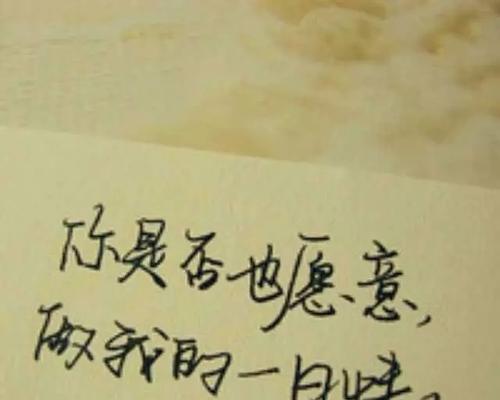 你是否也愿意,
做我的一日